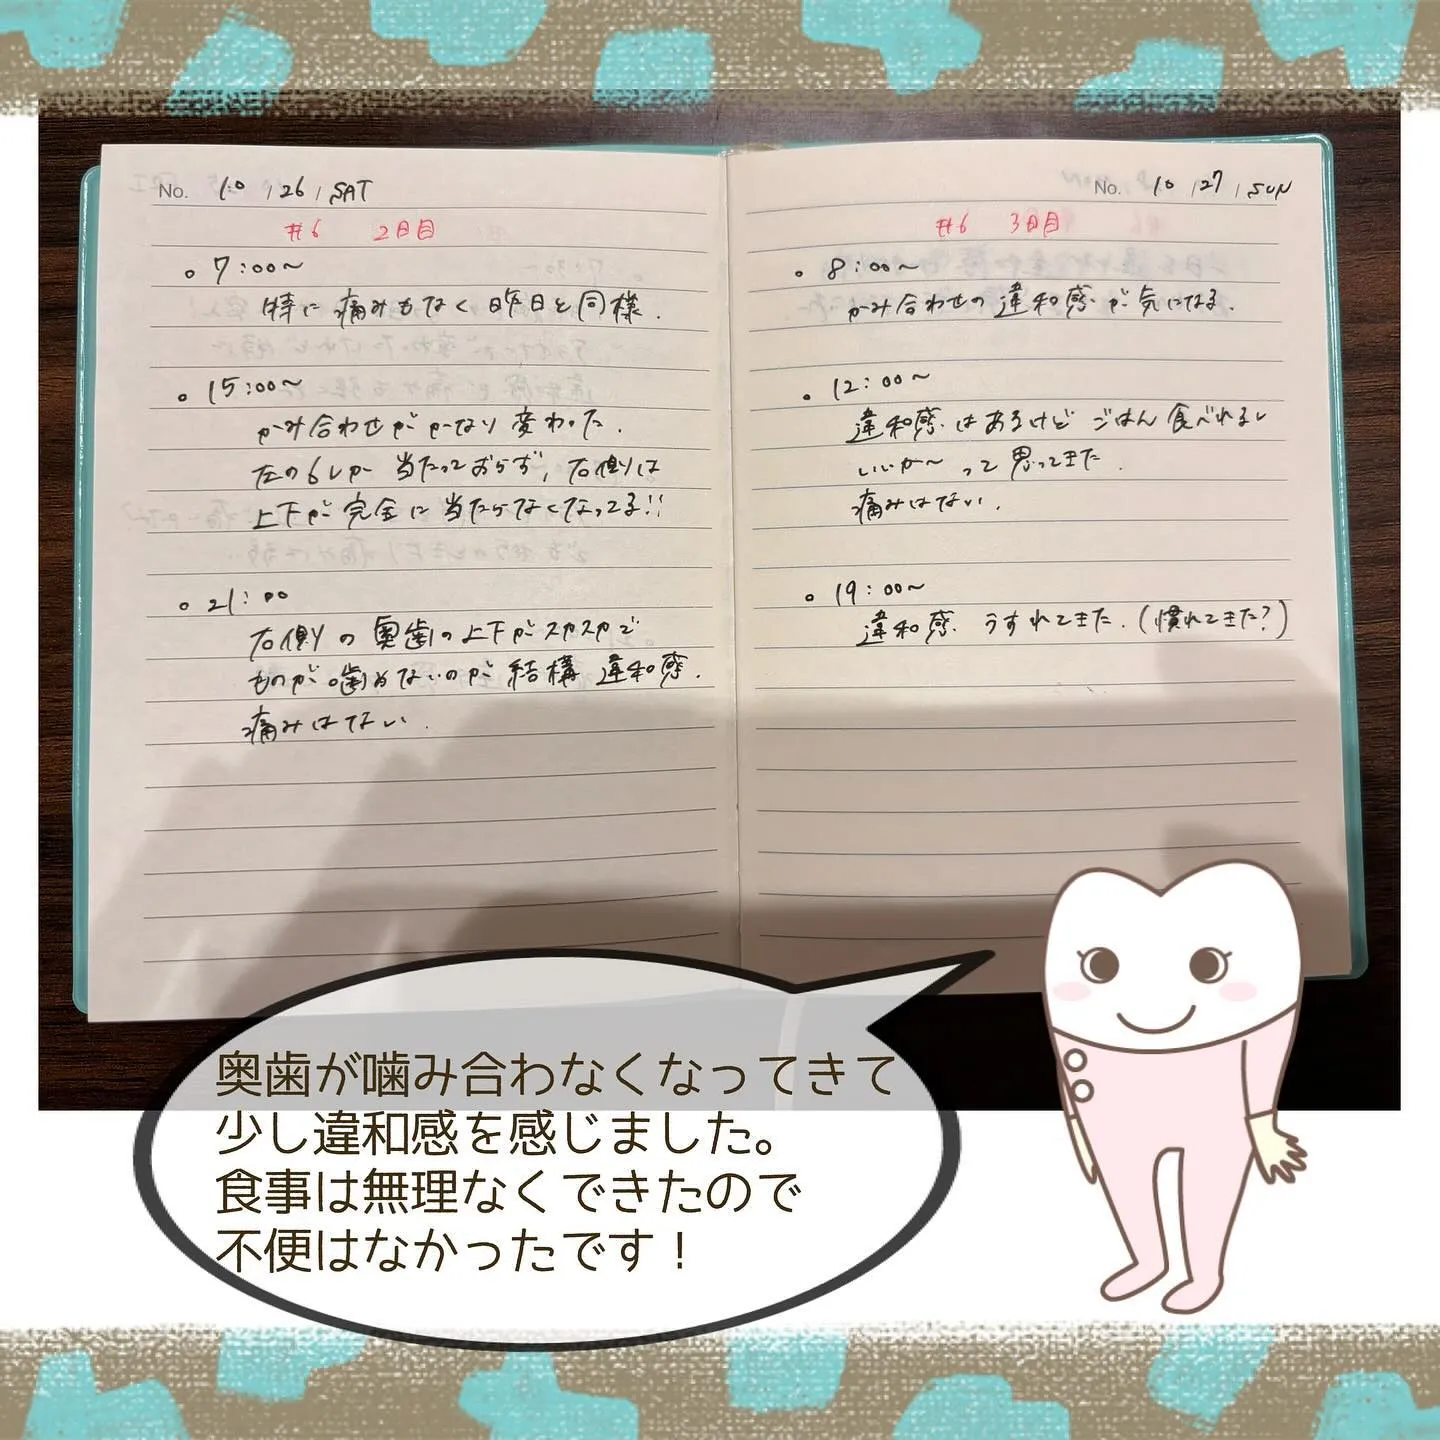 No. 10 / 26 / SAT
#6 2日目
。7:00〜
特に痛みもなく昨日と同様.
。15:00〜
かみ合わせがかなり変わった.
左の6しか当たっておらず, 右側は
上下が完全に当たらなくなってる!!
。21:00
右側の奥歯の上下がスカスカで
ものが噛めないのが結構違和感.
痛みはない.
No. 10 / 27 / SUN
#6 3日目
。8:00〜
かみ合わせの違和感が気になる.
。12:00〜
違和感はあるけどごはん食べれるし
いいか〜って思ってきた.
痛みはない.
。19:00〜
違和感うすれてきた.(慣れてきた?)
奥歯が噛み合わなくなってきて
少し違和感を感じました。
食事は無理なくできたので
不便はなかったです！